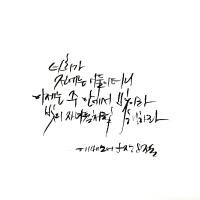 너희가
전에는 어둠이더니
이제는 주 안에서 빛이라
빛의 자녀들처럼 행하라
에베소서 5장 8절